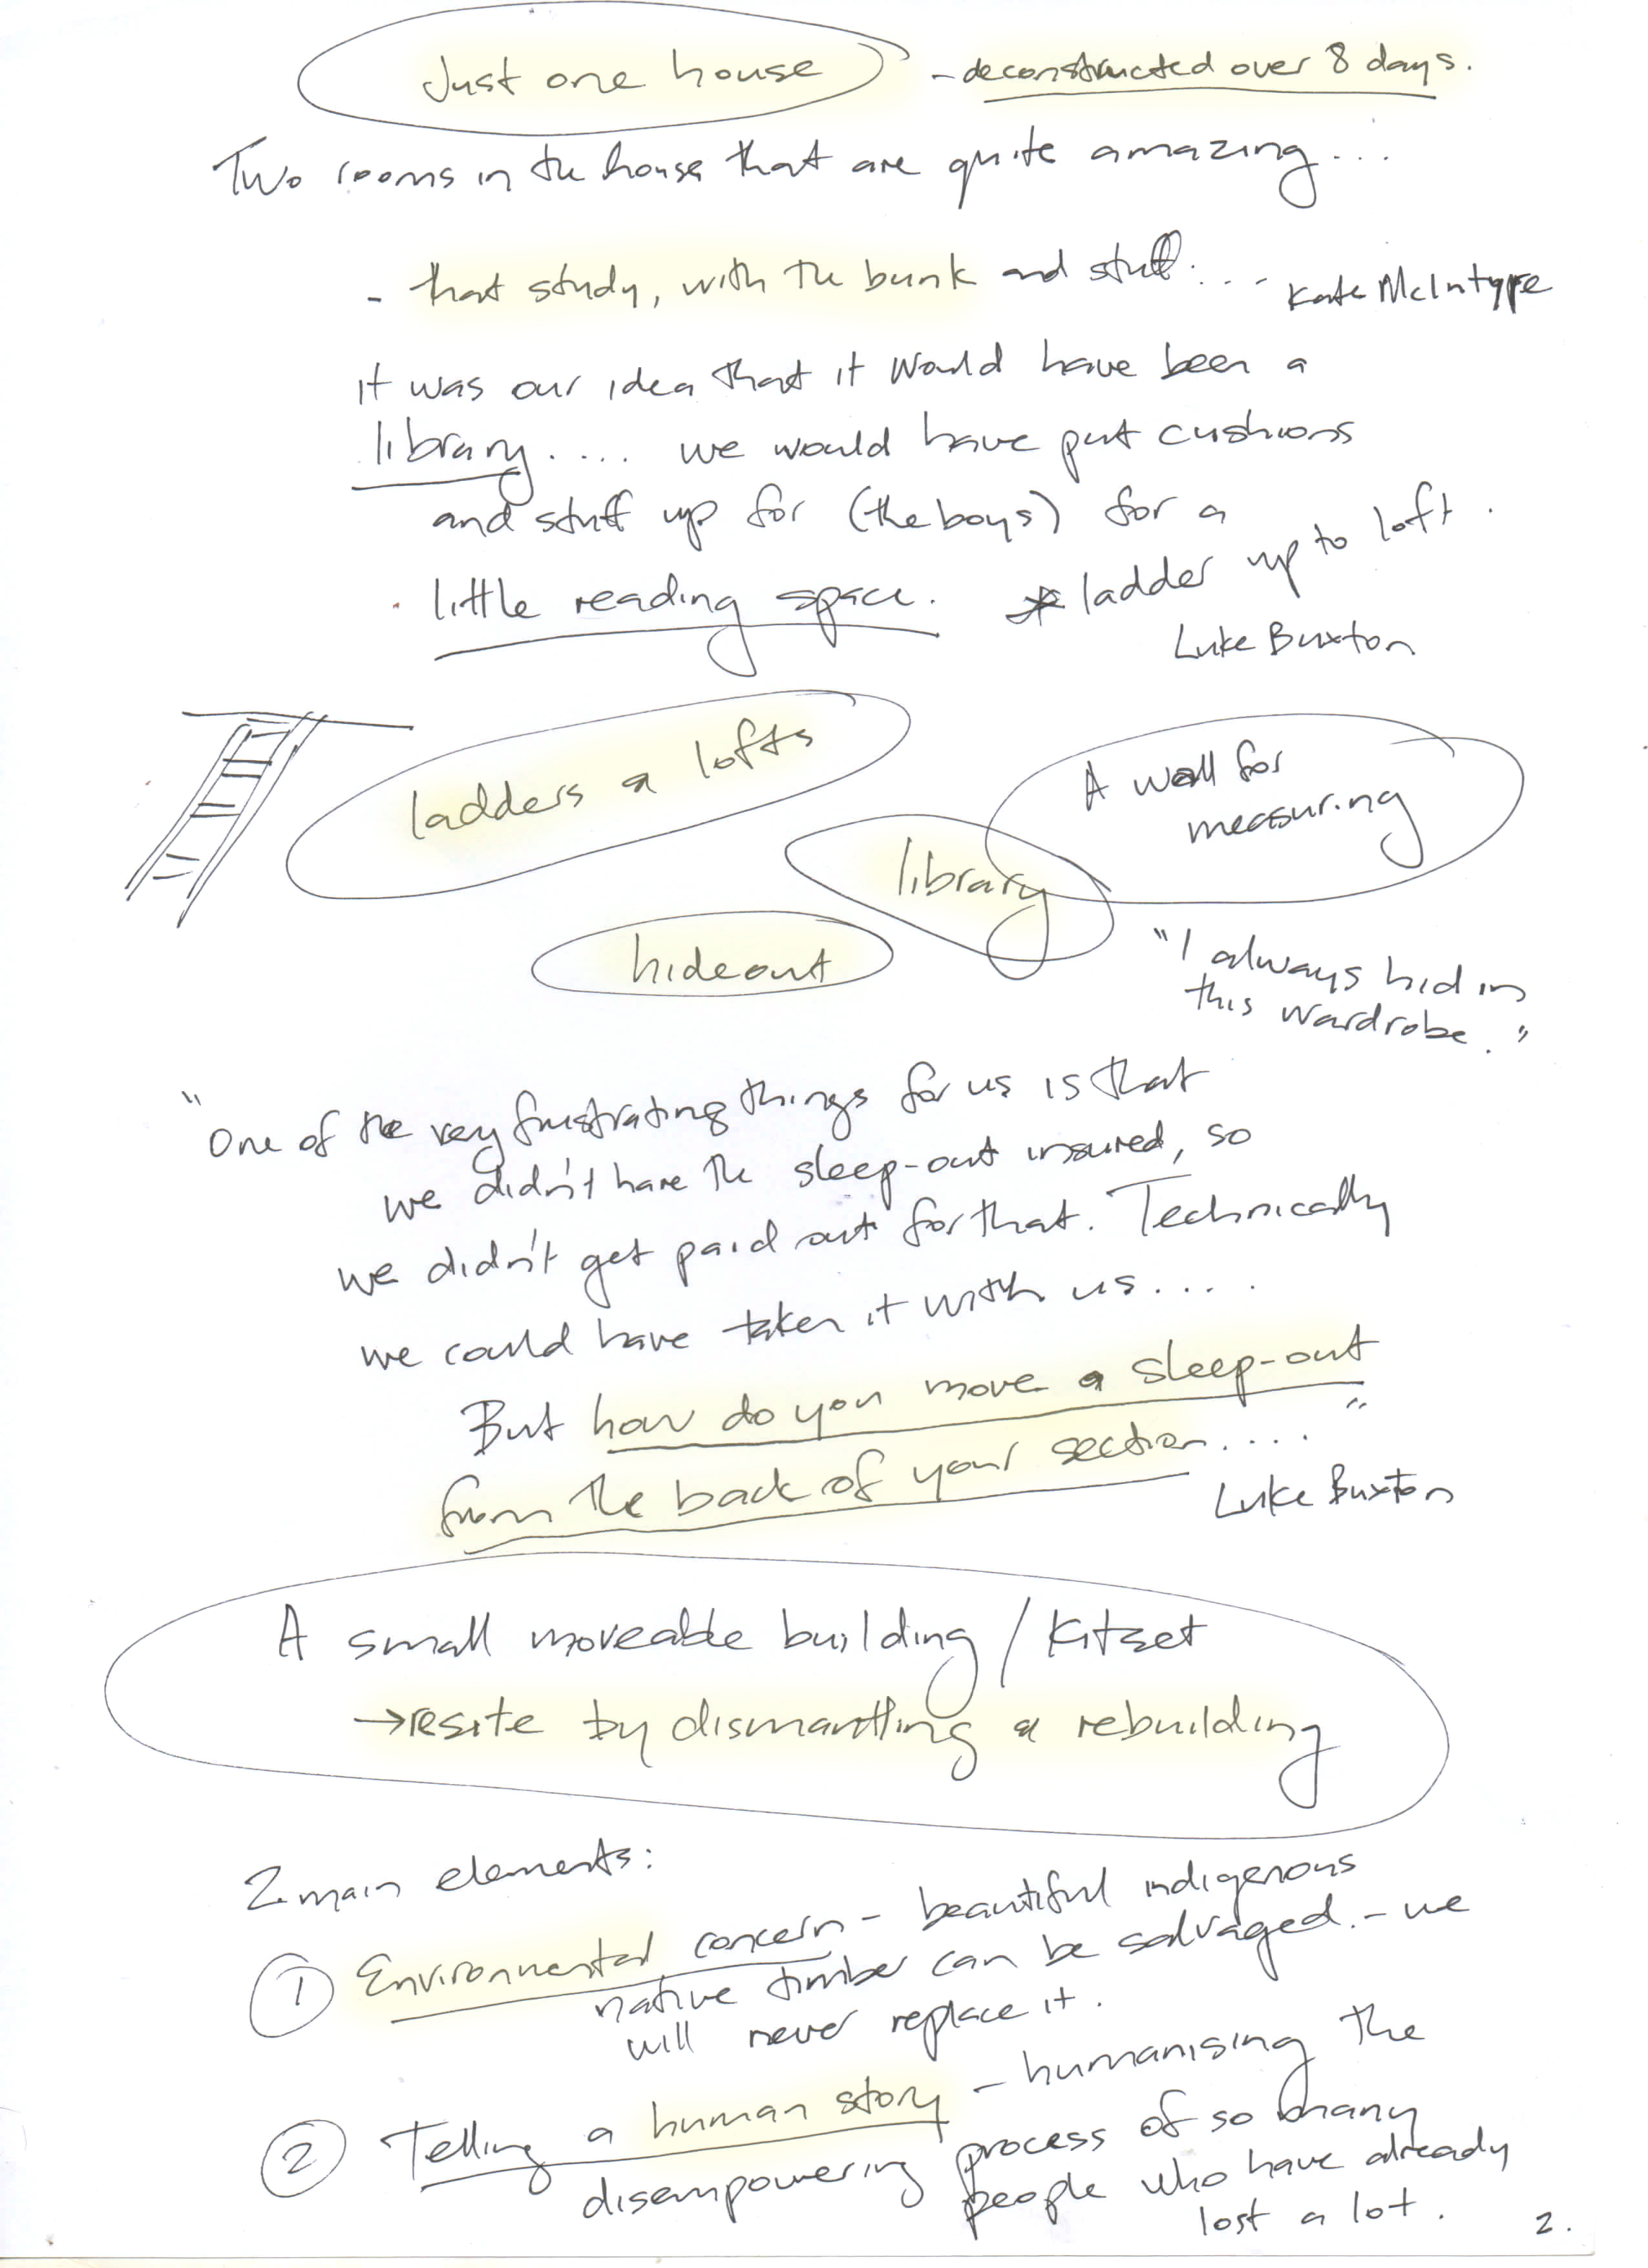 Just one house - deconstructed over 8 days.
Two rooms in the house that are quite amazing...
- that study, with the bunk and stuff... - Kate McIntyre
It was our idea that it would have been a
library.... we would have put cushions
and stuff up for (the boys) for a
little reading space. * ladder up to loft.
Luke Buxton
ladders & lofts
A wall for
measuring
library
hideout
"I always hid in
this wardrobe."
"One of the very frustrating things for us is that
we didn't have the sleep-out insured, so
we didn't get paid out for that. Technically
we could have taken it with us.....
But how do you move a sleep-out
from the back of your section...."
Luke Buxton
A small moveable building / Kitset
→ resite by dismantling & rebuilding
2 main elements:
① Environmental concern - beautiful indigenous
native timber can be salvaged. - we
will never replace it.
② Telling a human story - humanising the
disempowering process of so many
people who have already
lost a lot.
2.